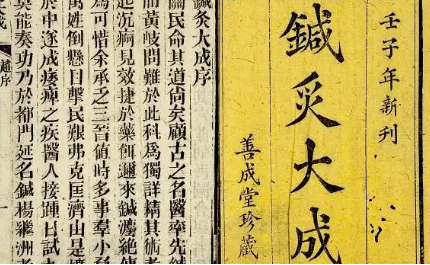 壬子年新刊
鍼灸大成
善成堂珍藏
鍼灸大成序
關民命其道尚矣顧古之名醫率先鍼
而黃岐問難於此科為獨詳精其術者
起沉痾見效捷於藥餌邇來鍼灋絕傳
為可惜余承乏三晉值時多事羣小
萬姓倒懸目擊民艱弗克匡濟由是
於中遂成痿痺之疾醫人接踵日試
莫能奏功乃於都門延名鍼楊繼洲者
趙序